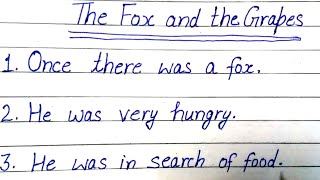 The Fox and the Grapes
1. Once there was a fox.
2. He was very hungry.
3. He was in search of food.